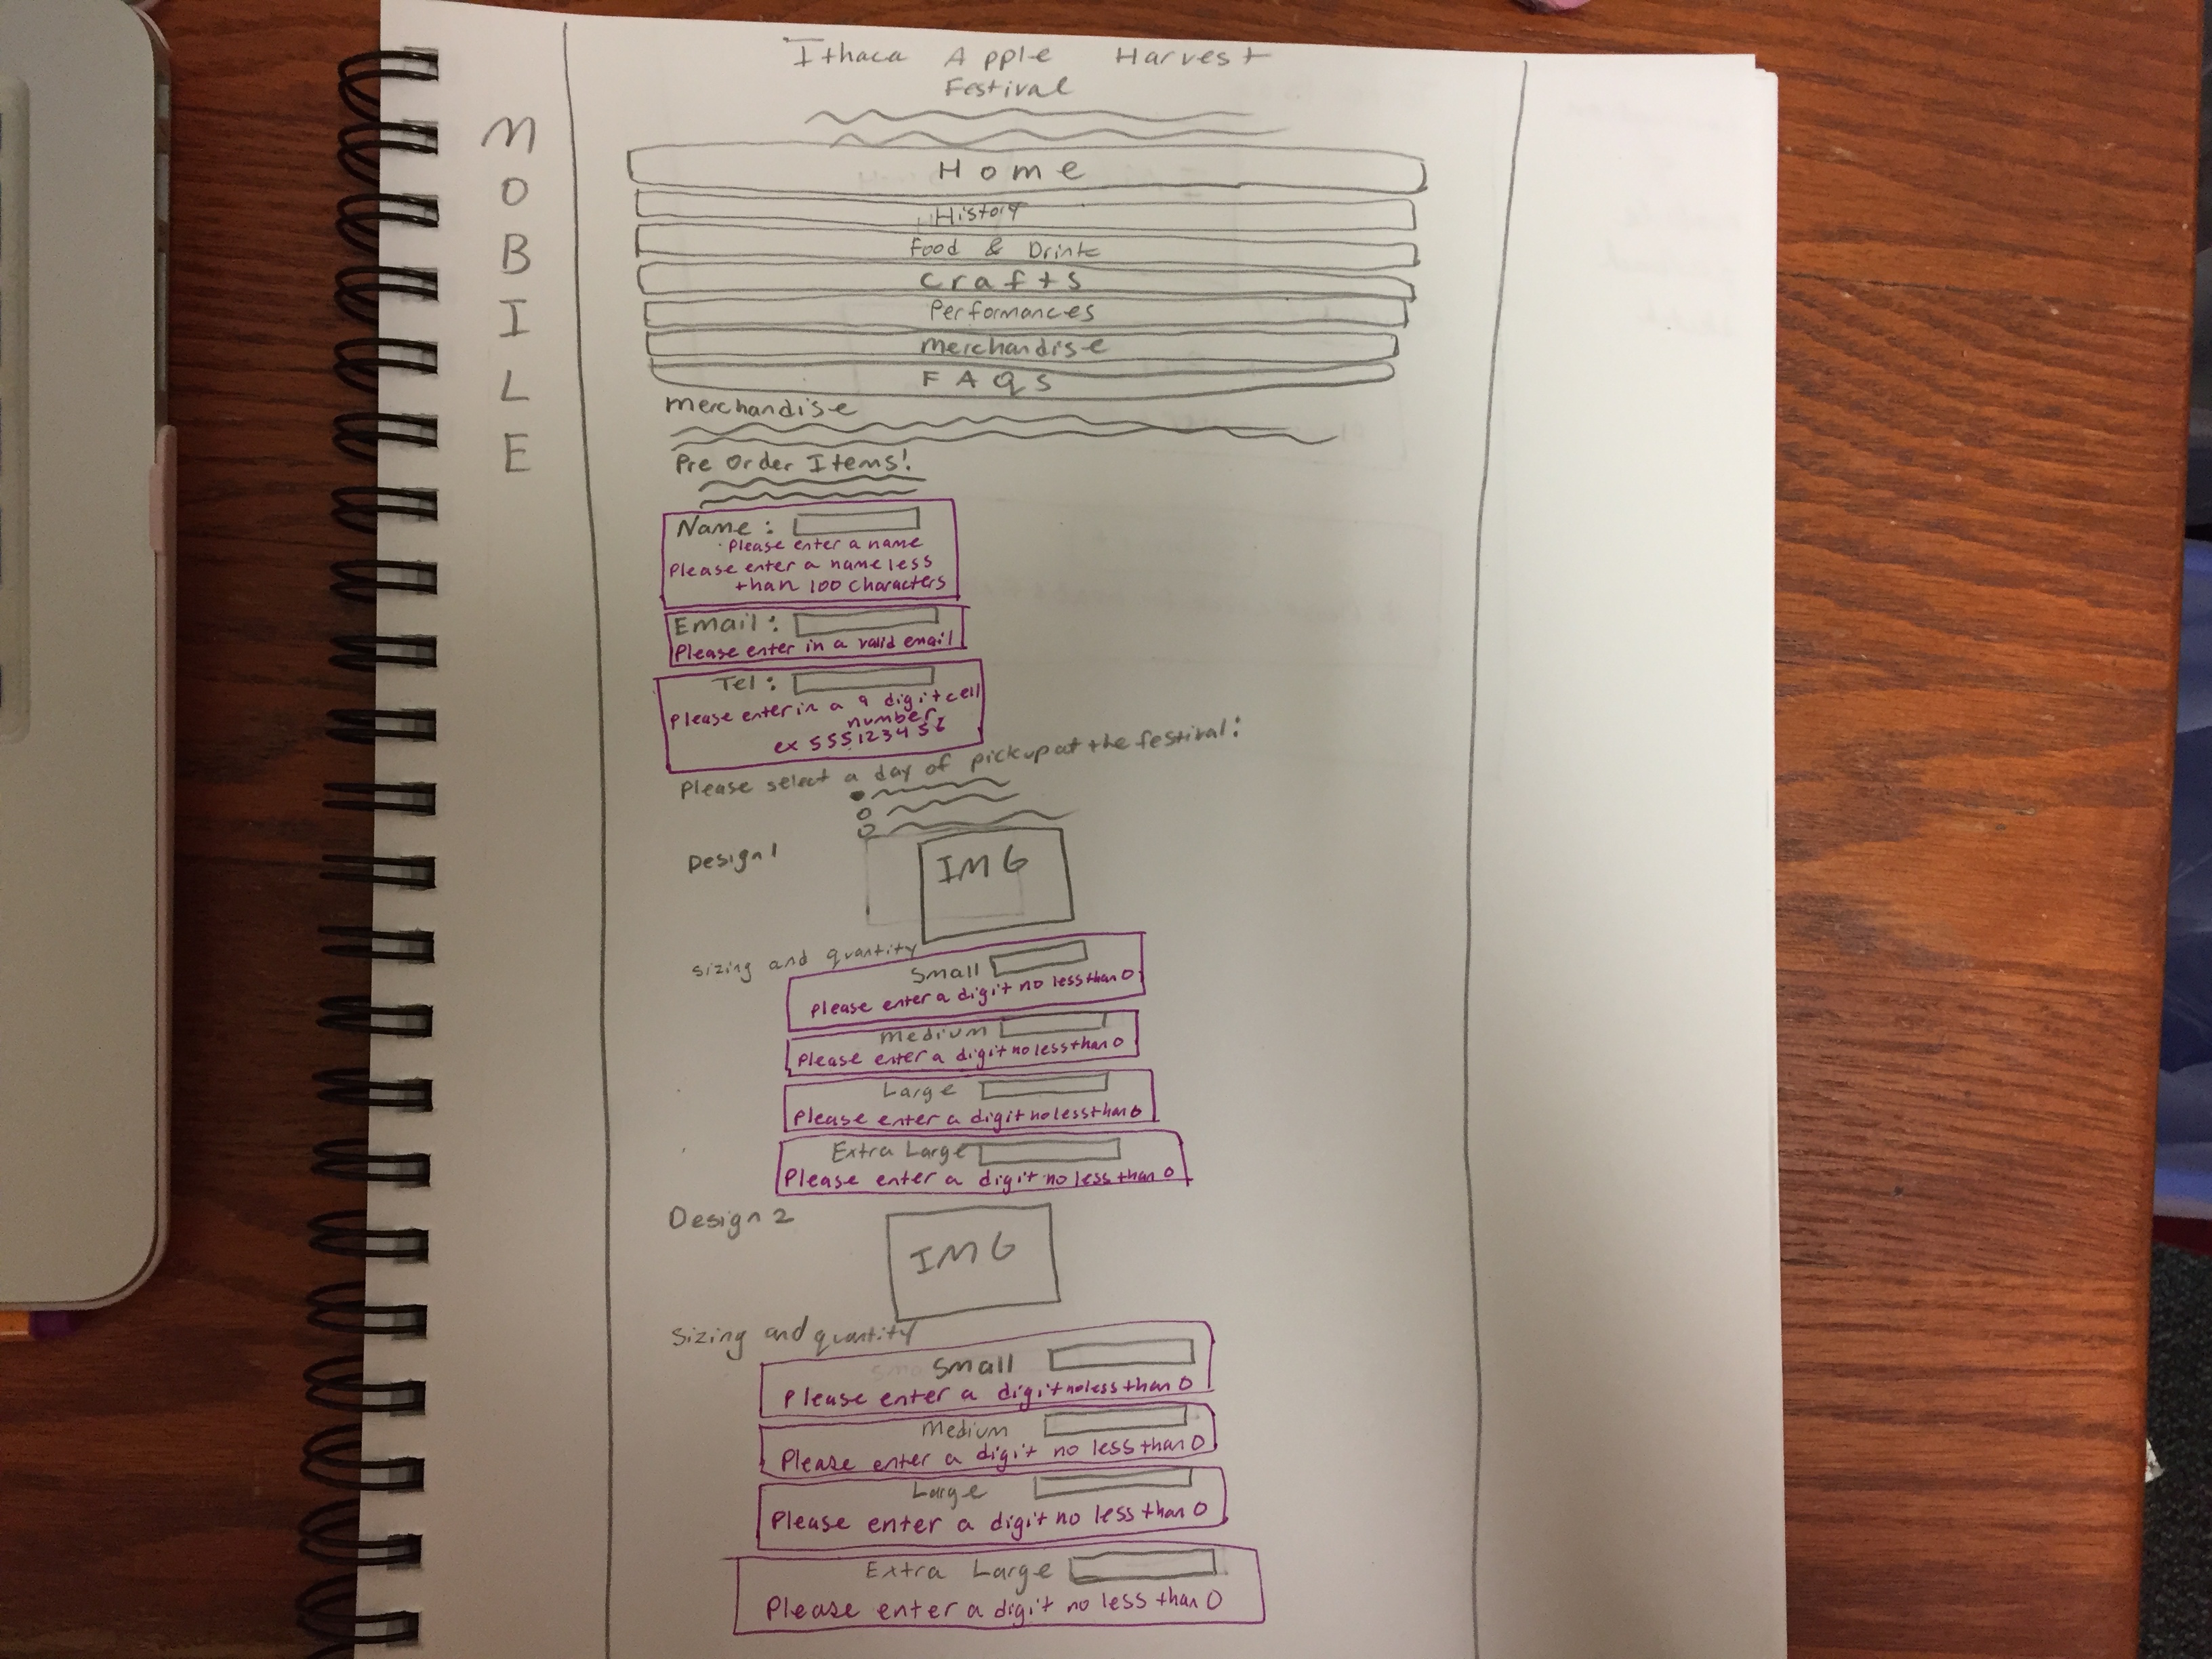 MOBILE
Ithaca Apple Harvest
Festival
Home
History
Food & Drink
Crafts
Performances
Merchandise
FAQs
Merchandise
Pre Order Items!
Name:
Please enter a name
Please enter a name less
than 100 characters
Email:
Please enter in a valid email
Tel:
Please enter in a 9 digit cell
number
ex 555123456
Please select a day of pickup at the festival:
Design 1
IMG
Sizing and quantity
Small
Please enter a digit no less than 0
Medium
Please enter a digit no less than 0
Large
Please enter a digit no less than 0
Extra Large
Please enter a digit no less than 0
Design 2
IMG
Sizing and quantity
Small
Please enter a digit no less than 0
Medium
Please enter a digit no less than 0
Large
Please enter a digit no less than 0
Extra Large
Please enter a digit no less than 0